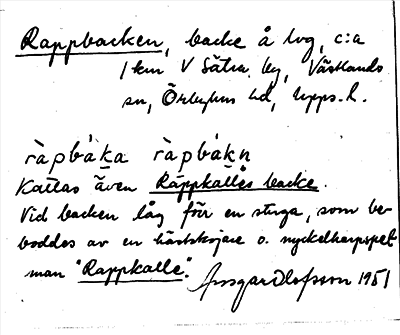 Rappbacken, backe å lvg, c:a
1 km V Sätra by, Västlands
sn, Örbyhus hd, Upps. l.
ràpbáka ràpbákn
Kallas även Rappkalles backe.
Vid backen låg förr en stuga, som be-
boddes av en hästskojare o. nyckelharpspel-
man "Rappkalle".
Ansgar Olofsson 1951